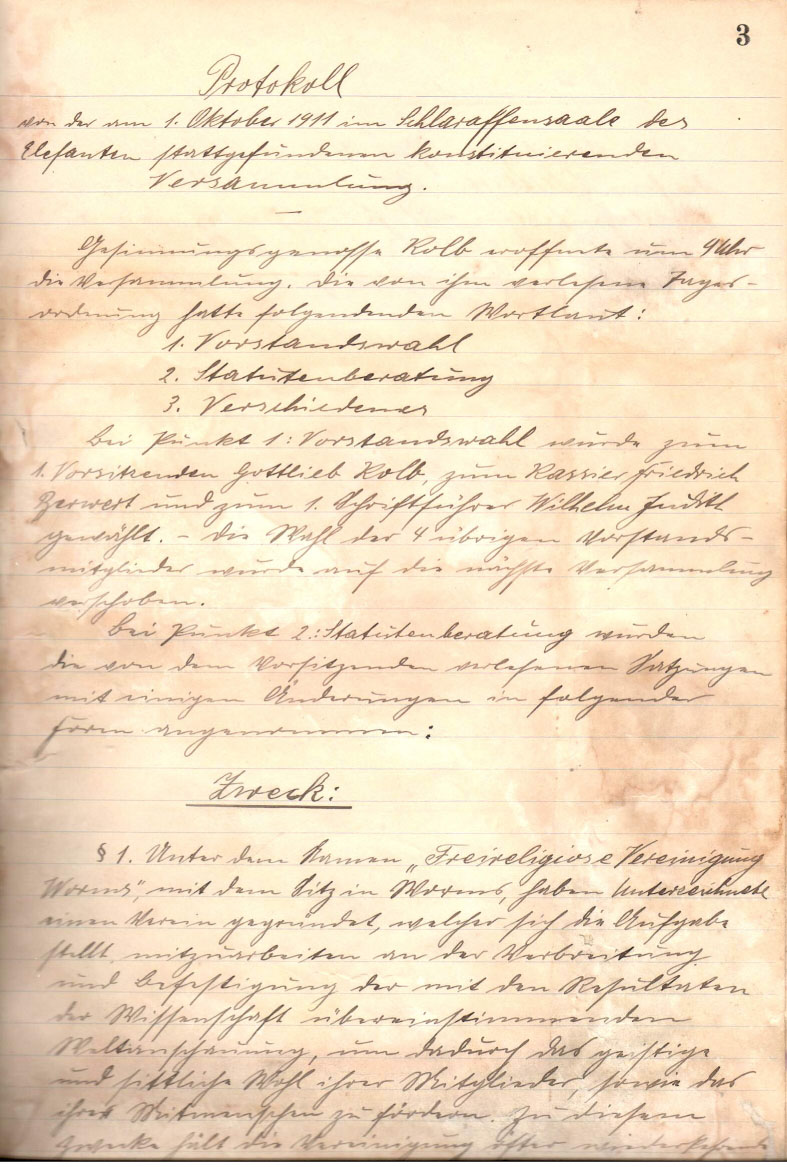 3
Protokoll
von der am 1. Oktober 1911 im Schlaraffensaale des
Elefanten stattgefundenen konstituierenden
Versammlung.
Gesinnungsgenosse Kolb eröffnete um 9 Uhr
die Versammlung. Die von ihm verlesene Tages-
ordnung hatte folgendenden Wortlaut:
1. Vorstandswahl
2. Statutenberatung
3. Verschiedenes
Bei Punkt 1: Vorstandswahl wurde zum
1. Vorsitzenden Gottlieb Kolb, zum Kassier Friedrich
und zum 1. Schriftführer Wilhelm
gewählt. – Die Wahl der 4 übrigen Vorstands-
mitglieder wurde auf die nächste Versammlung
verschoben.
Bei Punkt 2: Statutenberatung wurden
die von dem Vorsitzenden verlesenen Satzungen
mit einigen Änderungen in folgender
Form angenommen:
Zweck:
§ 1. Unter dem Namen „Freireligiöse Vereinigung
Worms", mit dem Sitz in Worms, haben Unterzeichnete
einen Verein gegründet, welcher sich die Aufgabe
stellt, mitzuarbeiten an der Verbreitung
und Befestigung der mit den Resultaten
der Wissenschaft übereinstimmenden
Weltanschauung, um dadurch das geistige
und sittliche Wohl ihrer Mitglieder, sowie das
ihrer Mitmenschen zu fördern. Zu diesem
Zwecke hält die Vereinigung öfter wiederkehrende